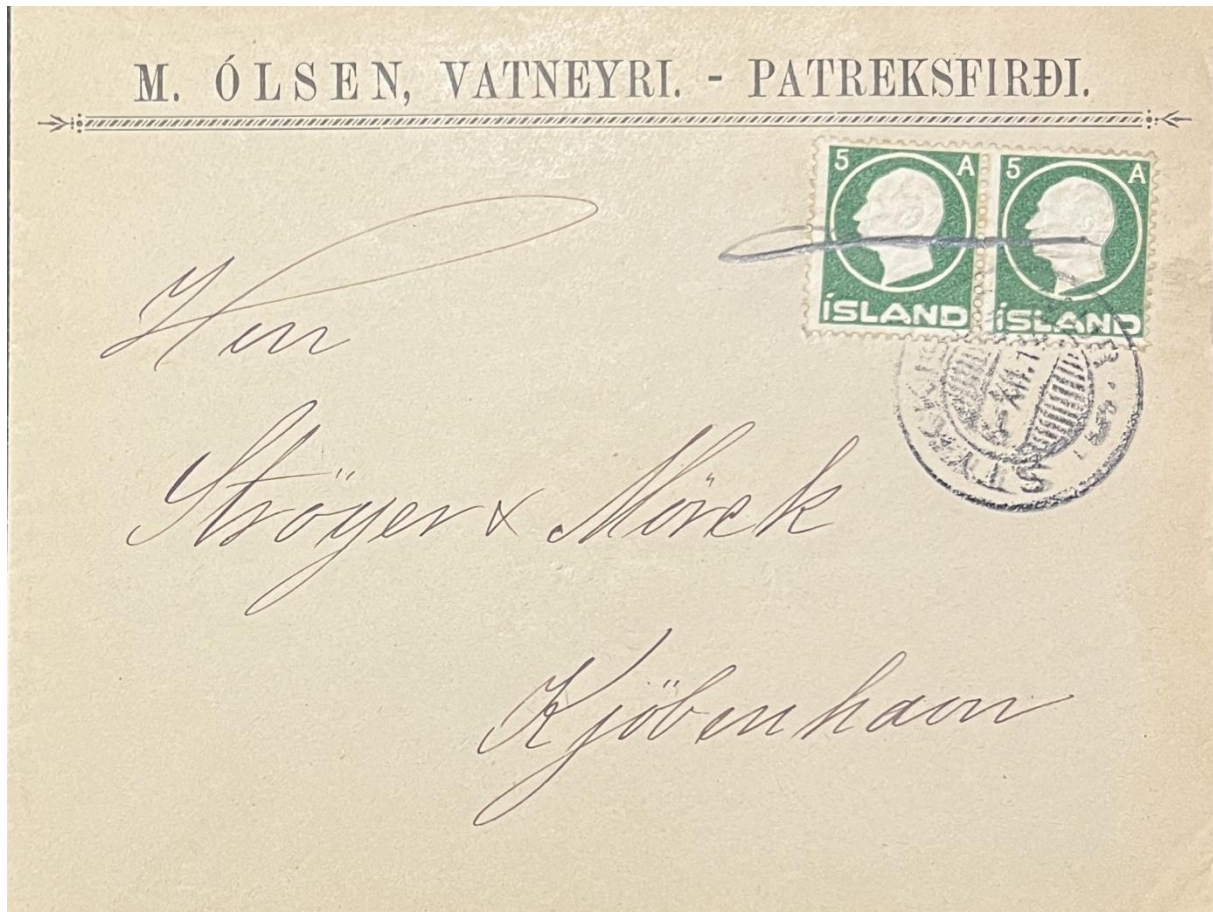 M. ÓLSEN, VATNEYRI. - PATREKSFIRÐI.
5 A 5 A
ÍSLAND ÍSLAND
Herr
Ströyer & Mörck
Kjöbenhavn